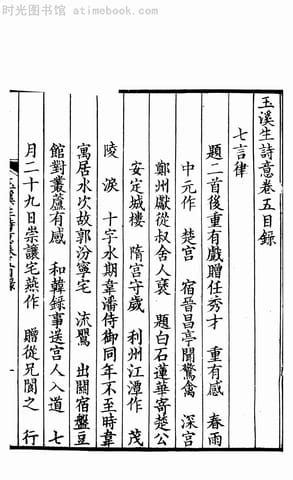 时光图书馆 atimebook.com
玉溪生詩意卷五目録
七言律
題二首後重有戲贈任秀才 重有感 春雨
中元作 楚宫 宿晉昌亭聞驚禽 深宫
鄭州獻從叔舍人褎 題白石蓮華寄楚公
安定城樓 隋宫守歲 利州江潭作 茂
陵 淚 十字水期韋潘侍御同年不至時韋
寓居水次故郭汾寧宅 流鶯 出關宿盤豆
館對叢蘆有感 和韓録事送宫人入道 七
月二十九日崇讓宅燕作 贈從兄閬之 行